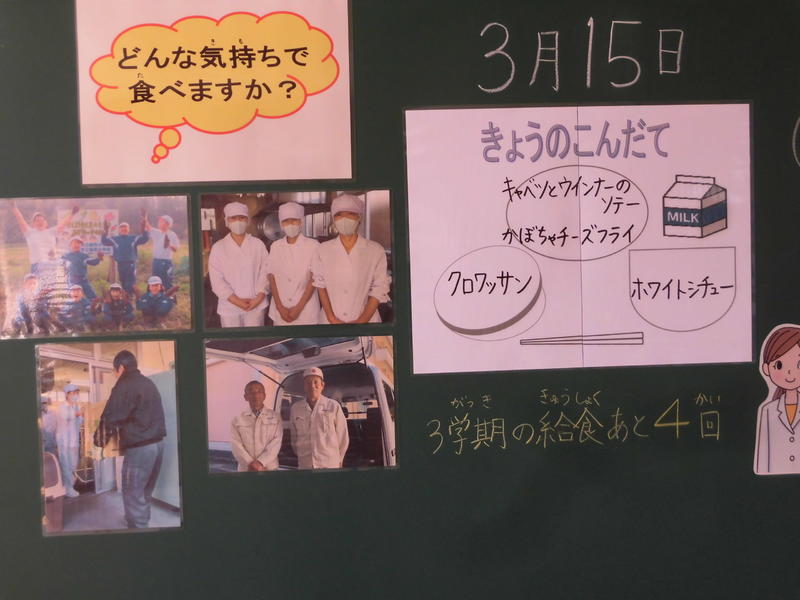 どんな気持ちで
食べますか？
3月15日
きょうのこんだて
キャベツとウインナーの
ソテー
かぼちゃチーズフライ
MILK
クロワッサン
ホワイトシチュー
3学期の給食あと4回